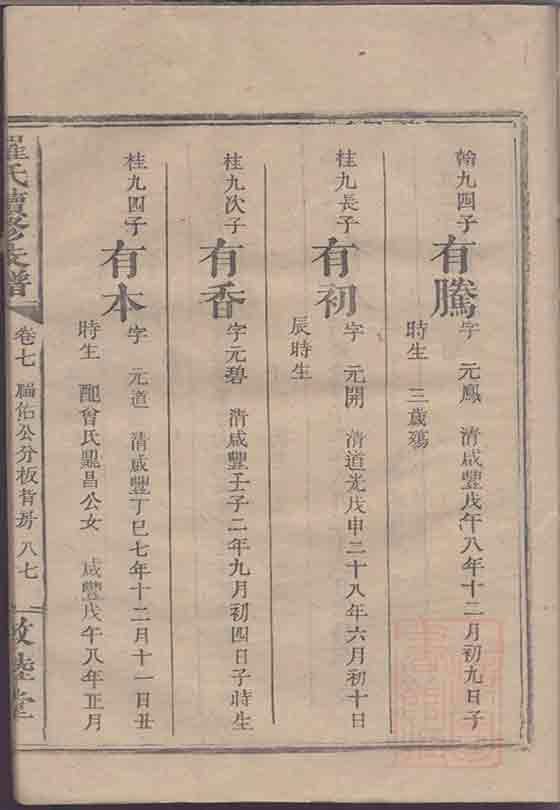 翰九四子
有騰
字 元鳳 清咸豐戊午八年十二月初九日子
時生 三歲殤
桂九長子
有初
字 元開 清道光戊申二十八年六月初十日
辰時生
桂九次子
有香
字元碧 清咸豐壬子二年九月初四日子時生
桂九四子
有本
字 元道 清咸豐丁巳七年十二月十一日丑
時生 配曾氏鼎昌公女 咸豐戊午八年正月
羅氏續修支譜
卷七 佑公分板背房 八七
敦睦堂